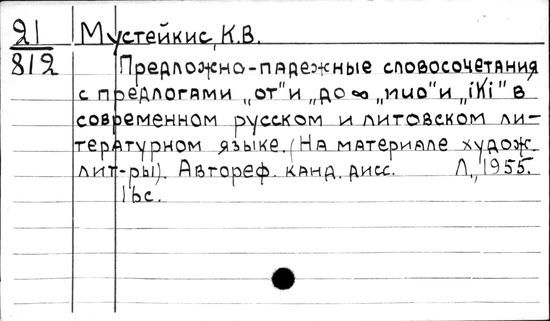 21 Мустейкис, К.В.
812 Предложно-падежные словосочетания
с предлогами „от" и „до" „nuo" и „iki" в
современном русском и литовском ли-
тературном языке. (На материале худож.
лит-ры). Автореф. канд. дисс. Л., 1955.
16с.